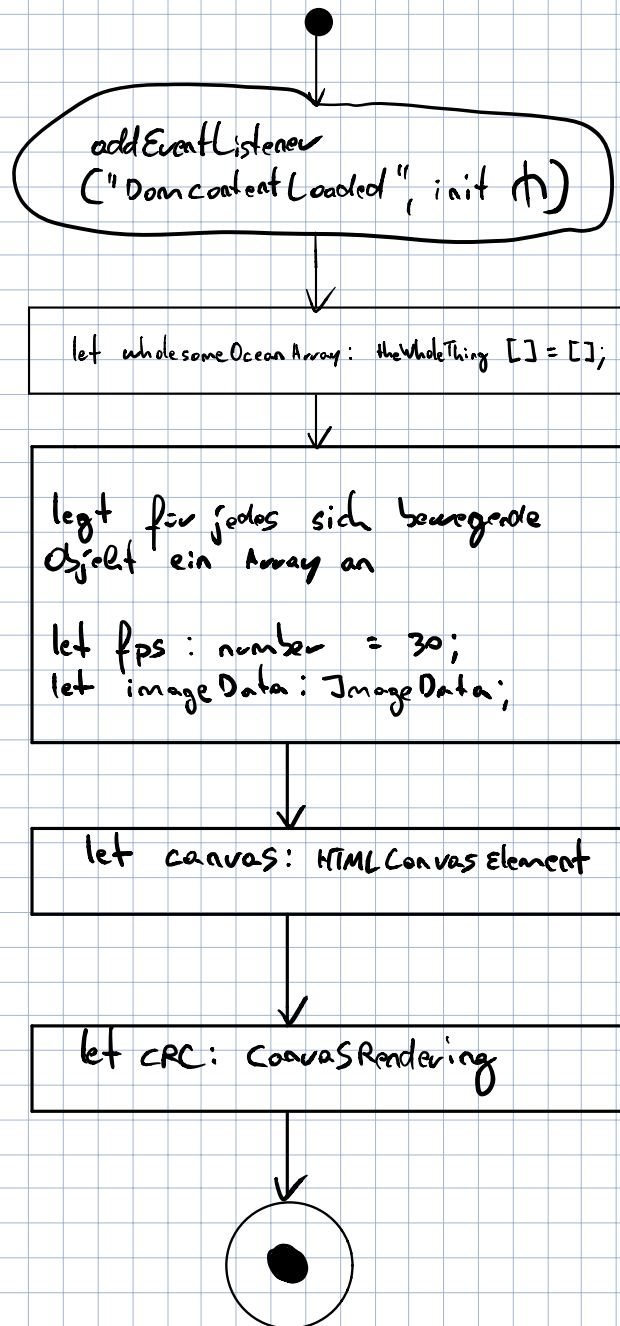 addEventListener
("DomcontentLoaded", init ⋔)
let wholesomeOceanArray: theWholeThing [] = [];
legt für jedes sich bewegende
Objekt ein Array an
let fps : number = 30;
let imageData: ImageData;
let canvas: HTMLCanvasElement
let CRC: CanvasRendering